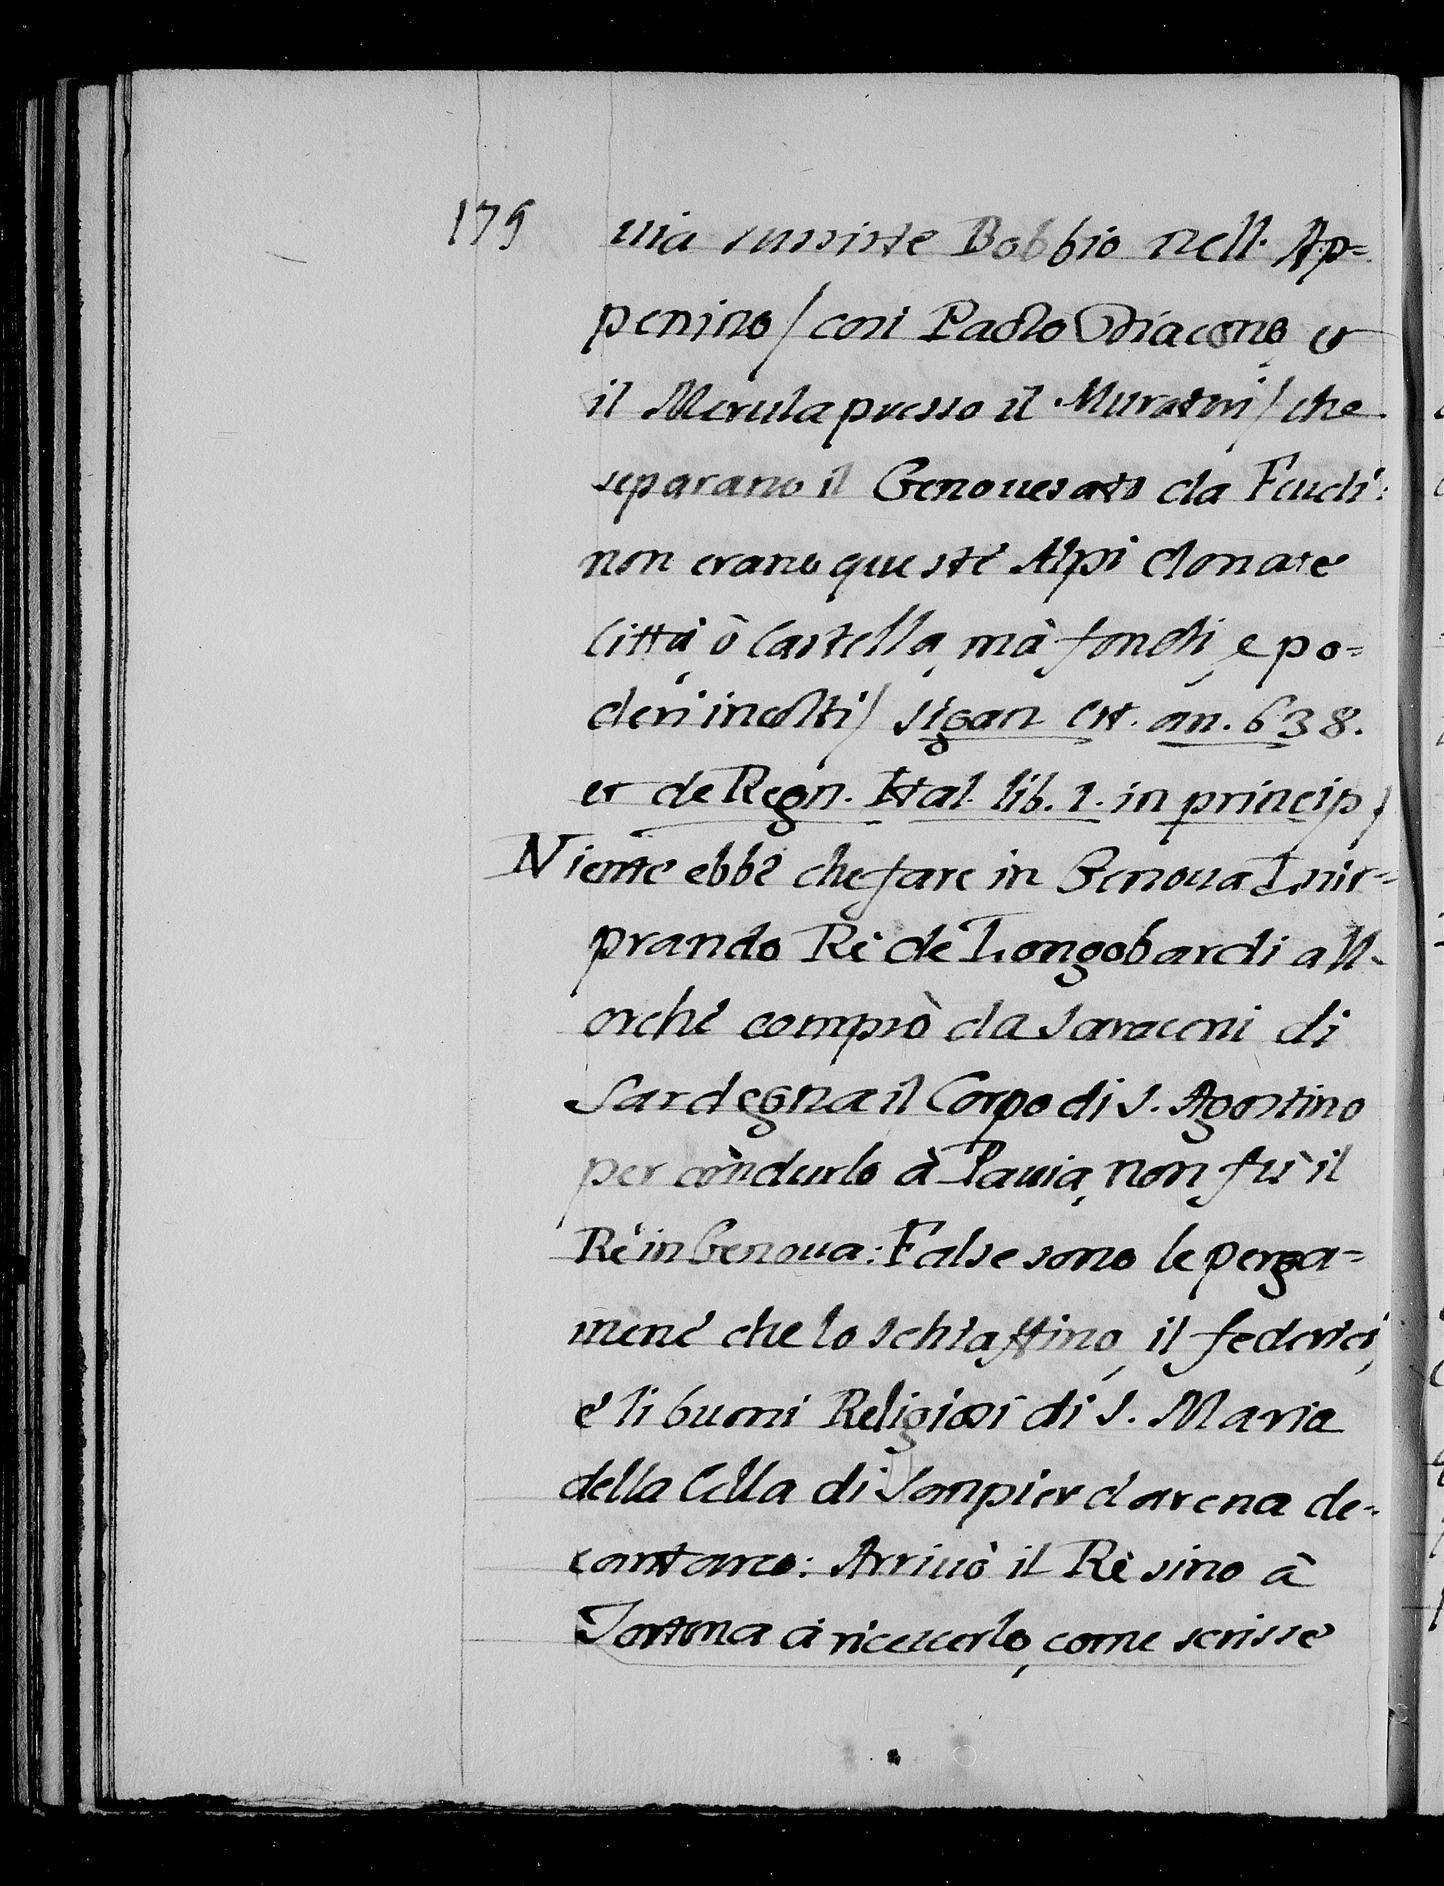 179
uia sussiste Bobbio nell. Ap=
penino / cosi Paolo Diacono, et
il Merula presso il Muratori / che
separano il Genouesato da Feudi:
non erano queste Alpi donate
Città ò Castella, mà fondi, e po=
deri incolti / Sigon Est. an. 638.
et de Regn. Ital. lib. 2. in princip /
Niente ebbe che fare in Genoua Luit=
prando Rè de Longobardi all-
orche comprò da Saraceni di
Sardegna il Corpo di S. Agostino
per condurlo à Pauia, non fù il
Rè in Genoua: False sono le perga=
mene che lo Schiaffino, il federici,
e li buoni Religiosi di S. Maria
della Cella di Sanpier d'arena de-
cantano: Arriuò il Rè sino à
Tortona à riceuerlo, come scrisse